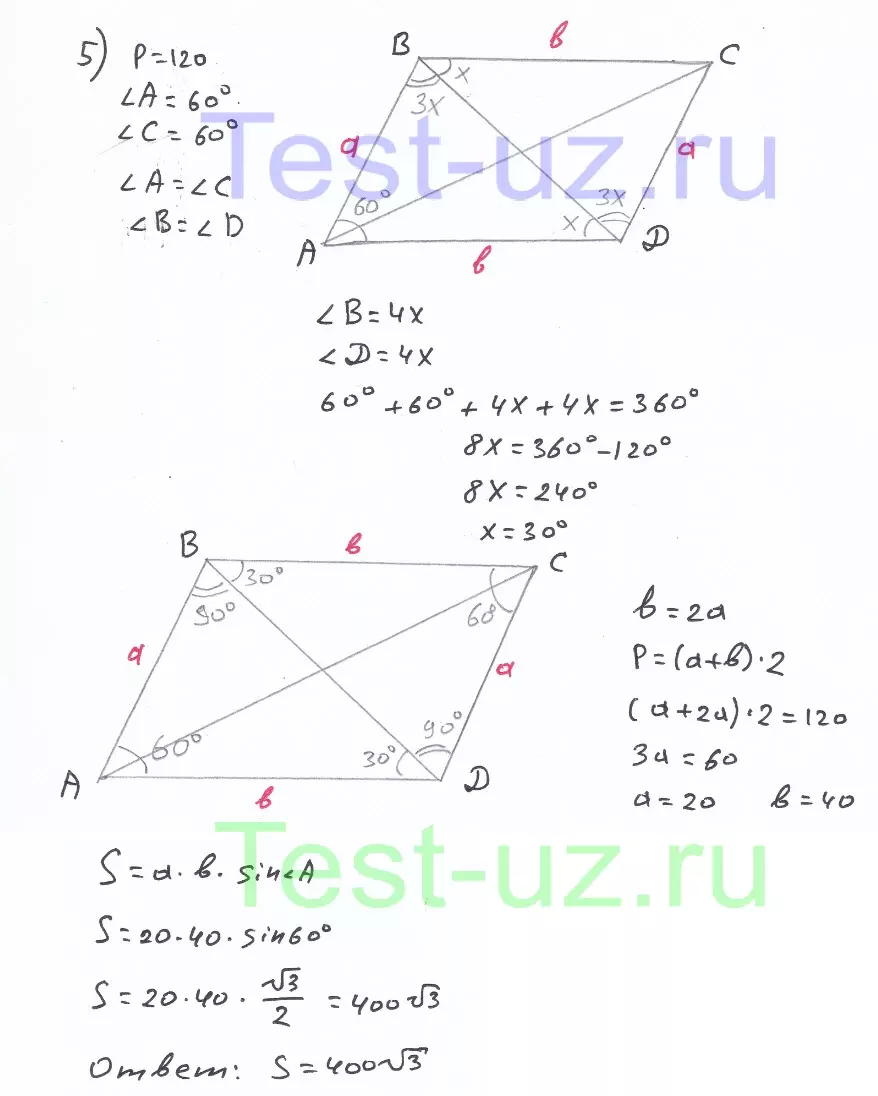 5) P=120
∠A=60°
∠C=60°
∠A=∠C
∠B=∠D
B
в
C
x
3x
a
a
60°
3x
x
A
в
D
Test-uz.ru
∠B=4x
∠D=4x
60°+60°+4x+4x=360°
8x=360°-120°
8x=240°
x=30°
B
в
C
30°
90°
60
a
a
60°
90°
30°
A
в
D
в=2a
P=(a+в)·2
(a+2a)·2=120
3a=60
a=20 в=40
Test-uz.ru
S=a·в·sin∠A
S=20·40·sin60°
S=20·40·√3/2=400√3
Ответ: S=400√3